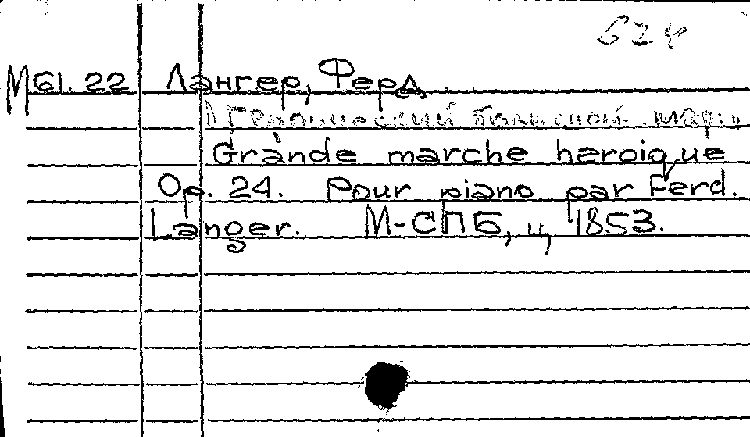 624
М61.22 Лангер, Ферд.
[Героический большой марш]
Grande marche heroique
Op. 24. Pour piano par Ferd.
Langer. М-СПБ, ц, 1853.